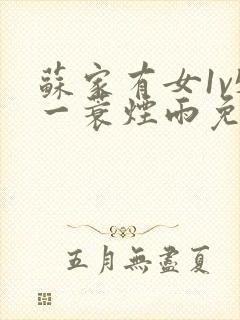 蘇家有女1v
一蓑煙雨免
五月無盡夏